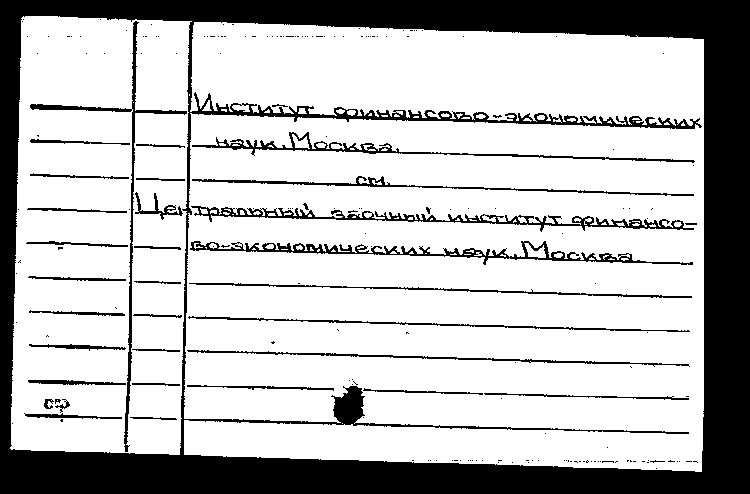 Институт финансово-экономических
наук. Москва.
см.
Центральный заочный институт финансо-
во-экономических наук. Москва.